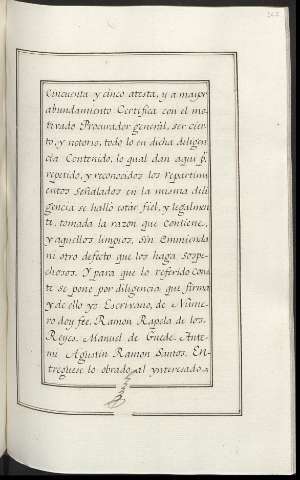 Cincuenta y cinco atesta, y a mayor
abundamiento Certifica con el mo-
tivado Procurador general, ser cier-
to, y notorio, todo lo en dicha diligen-
cia Contenido, lo qual dan aqui pr.
repetido, y reconocidos los repartimi-
entos señalados en la misma dili-
gencia se halló estár fiel, y legalmen-
te, tomada la razon que contiene,
y aquellos limpios, sin enmienda
ni otro defecto que los haga sospe-
chosos. Y para que lo referido Cons-
te se pone por diligencia que firma
y de ello yo Escrivano, de Núme-
ro doy fee. Ramon Rapela de los-
Reyes. Manuel de Guede. Ante-
mi Agustin Ramon Santos. En-
treguese lo obrado al ynteresado